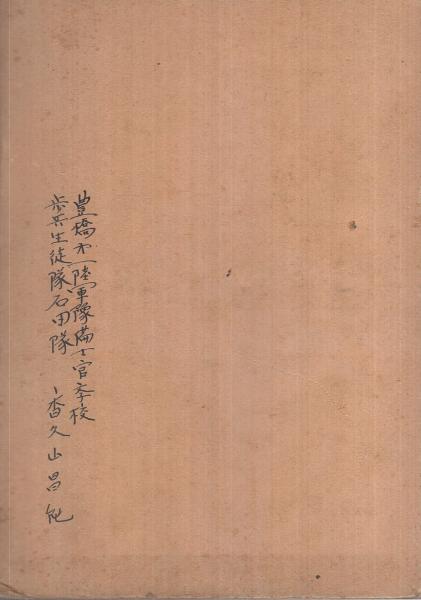 豊橋第一陸軍豫備士官学校
歩兵生徒隊石田隊 香久山昌